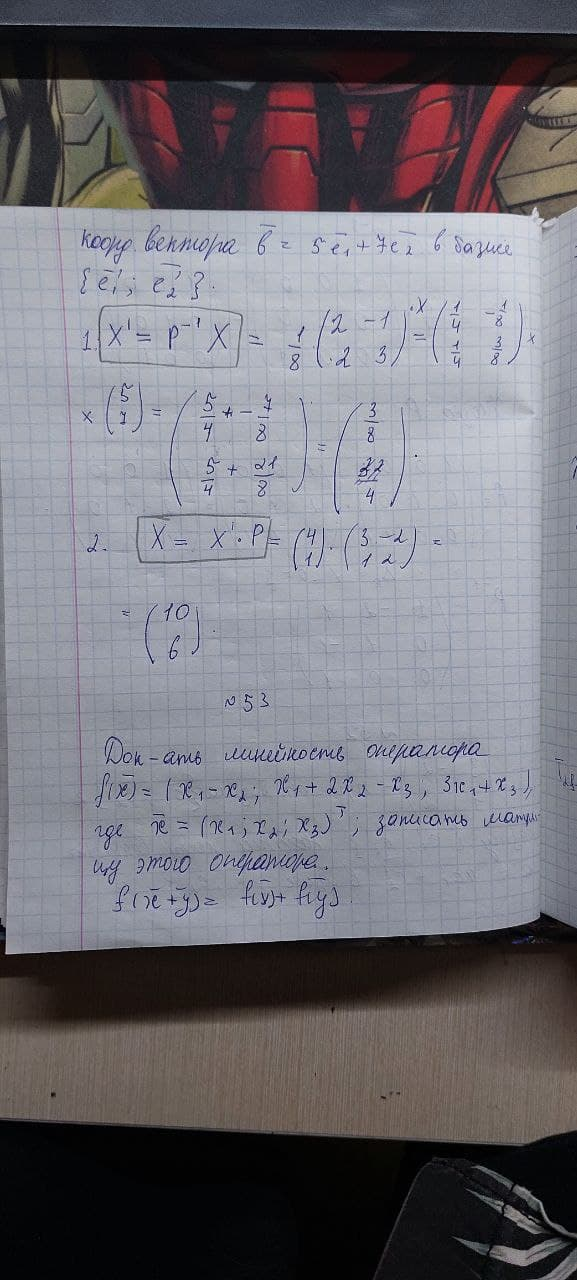 коорд. вектора b̄ = 5ē₁ + 7ē₂ в базисе
{ē₁'; ē₂'}.
1. X' = P⁻¹ X = 1/8 (2 -1; 2 3) · X = (1/4 -1/8; 1/4 3/8) ×
× (5; 7) = (5/4 + - 7/8; 5/4 + 21/8) = (3/8; /4).
2. X = X' · P = (4; 1) · (3 -2; 1 2) =
= (10; 6).
№53
Док-ать линейность оператора
f(x̄) = (x₁ - x₂; x₁ + 2x₂ - x₃; 3x₁ + x₃),
где x̄ = (x₁; x₂; x₃)ᵀ; записать матри
цу этого оператора.
f(x̄ + ȳ) = f(x̄) + f(ȳ)